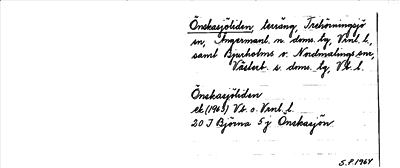 Önskasjöliden, terräng, Trehörningsjö
sn, Ångermanl. n. doms. lg, Vnl. l.,
samt Bjurholms o. Nordmalings snr,
Västerb. s. doms. lg, Vb. l.
Önskasjöliden
ek (1963) Vb. o. Vnl. l.
20 J Björna 5 j Önskasjön
S.P. 1964